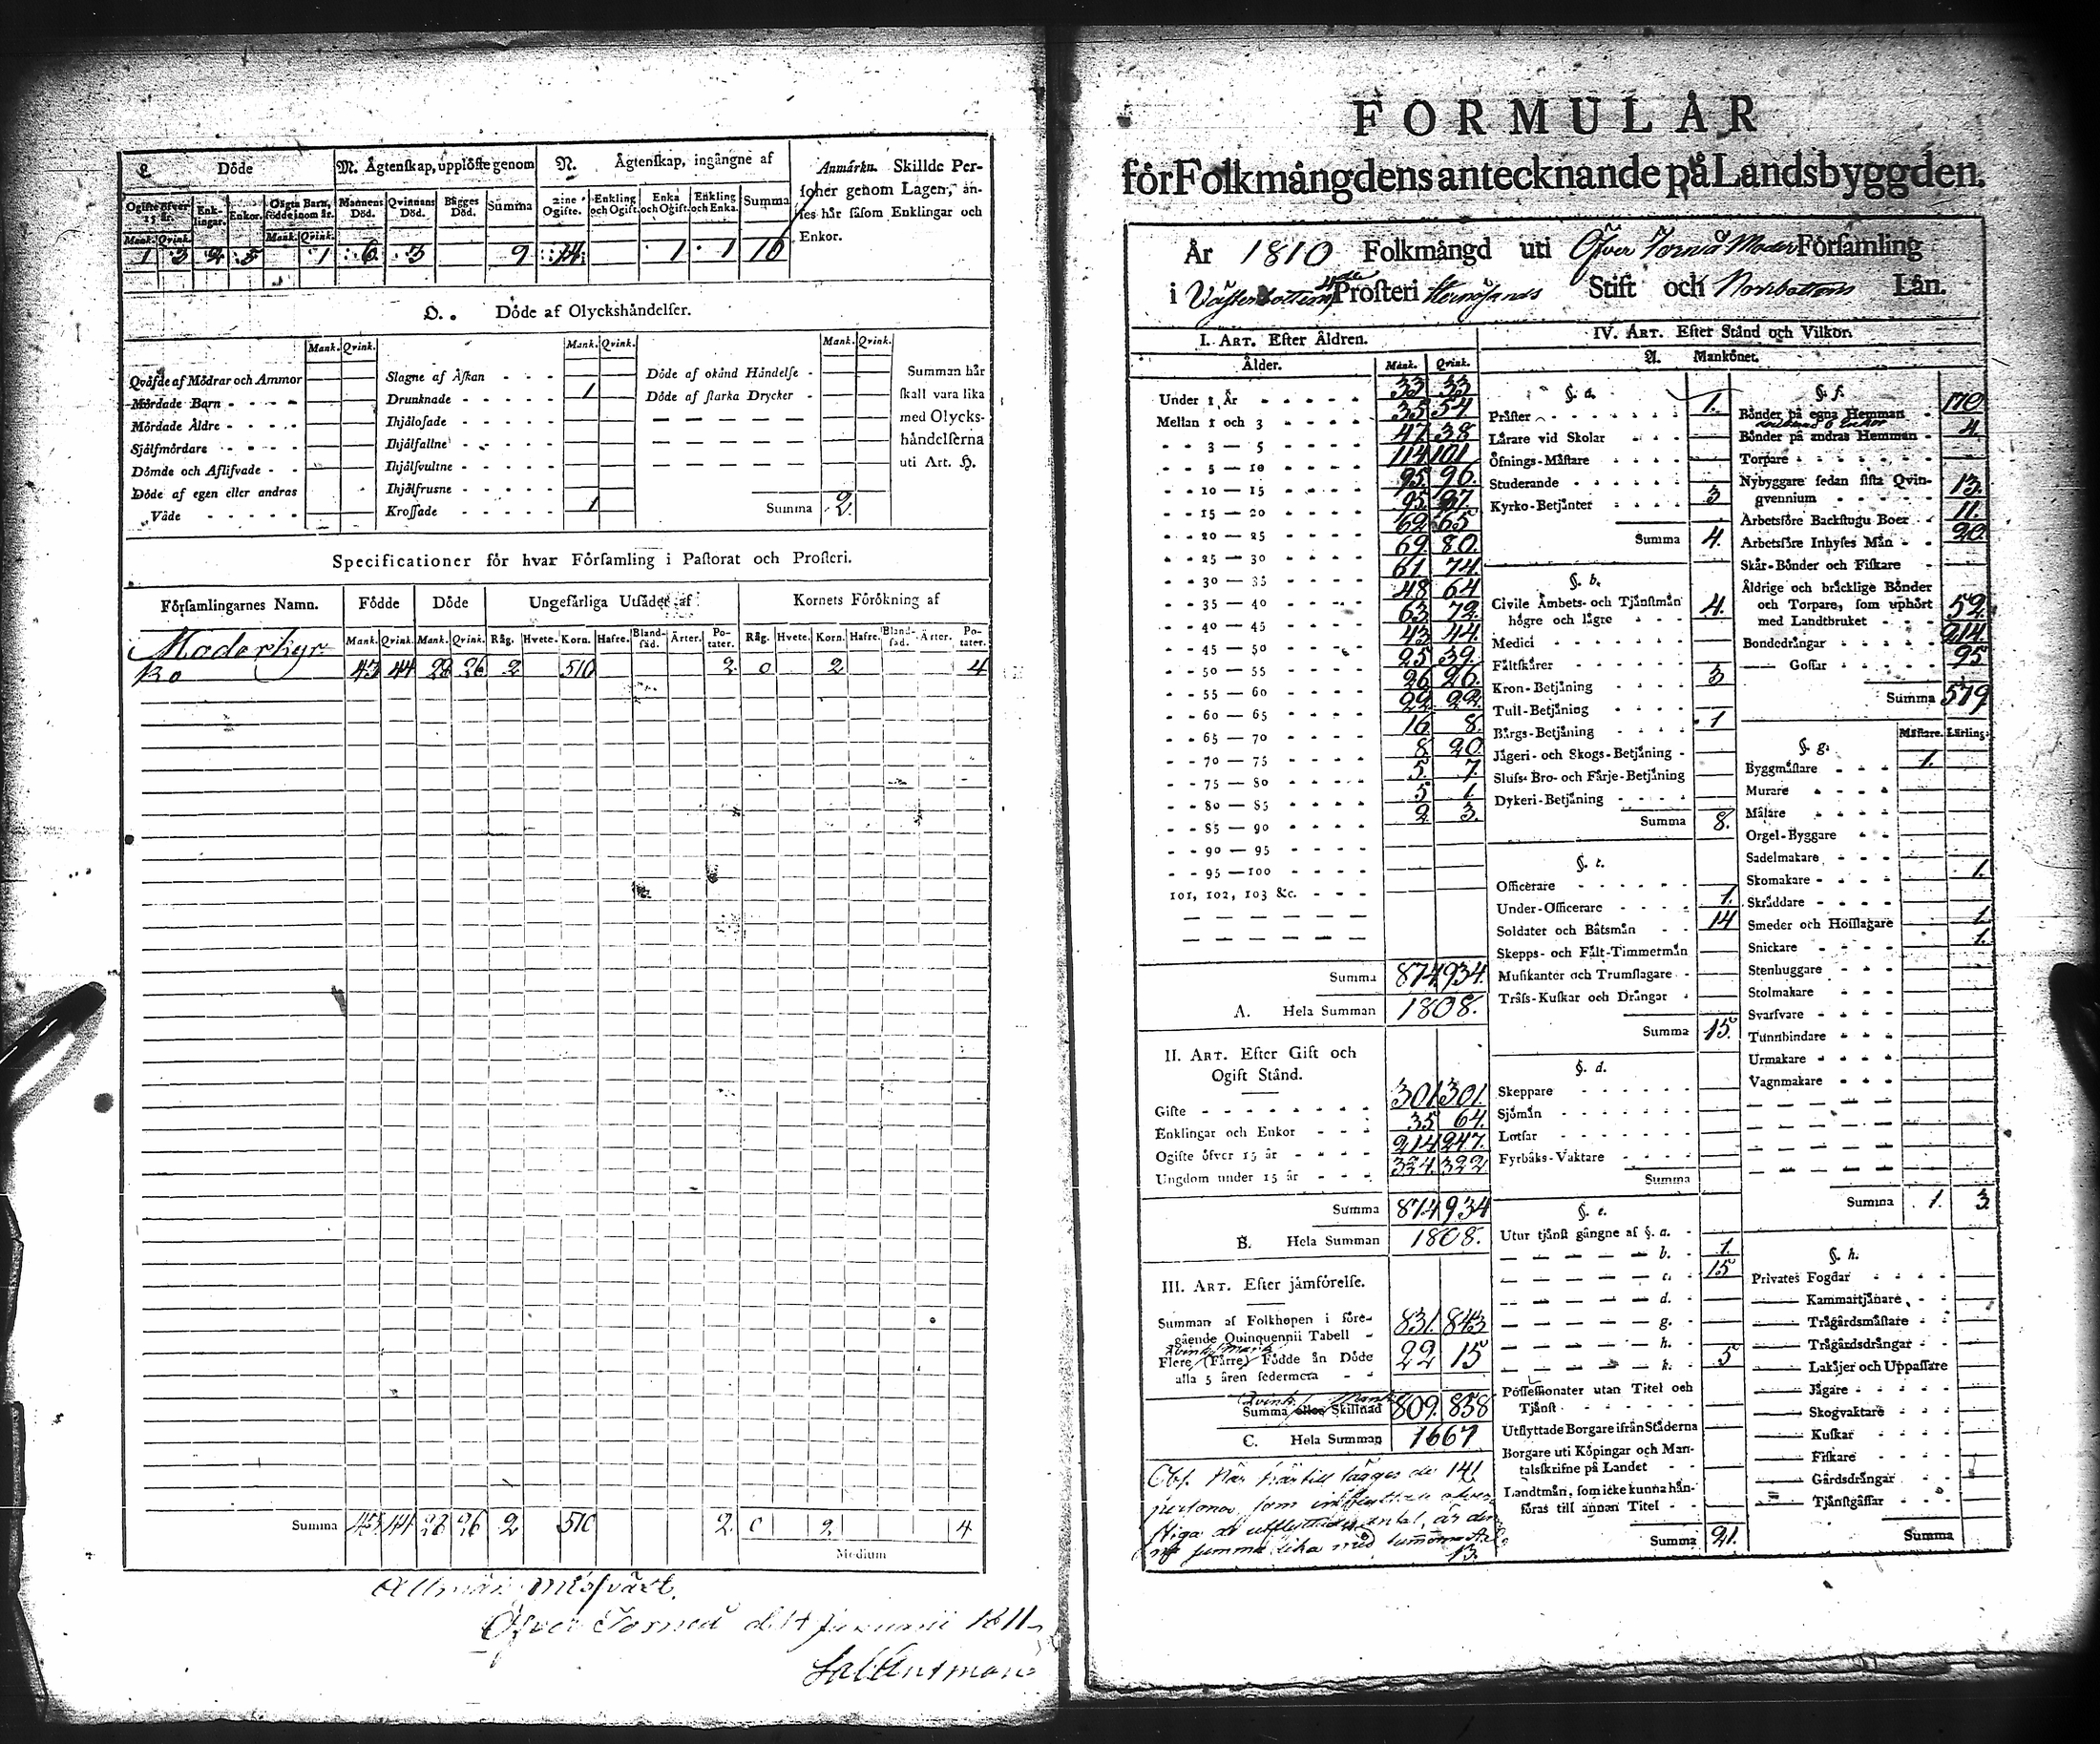 L. Döde
Ogifte öfver 15 år. Enklingar. Enkor. Oägta Barn, födde inom år.
Mank. Qvink. Mank. Qvink.
1 3 2 5 1
M. Ägtenskap, upplöste genom
Mannens Död. Qvinnans Död. Bägges Död. Summa
6 3 9
N. Ägtenskap, ingångne af
2:ne Ogifte. Enkling och Ogift. Enka och Ogift. Enkling och Enka. Summa
14 1 1 16
Anmärkn. Skillde Per-
soner genom Lagen, an-
ses här såsom Enklingar och
Enkor.
O. Döde af Olyckshändelser.
Mank. Qvink. Mank. Qvink. Mank. Qvink.
Qväfde af Mödrar och Ammor
Mördade Barn
Mördade Äldre
Självmördare
Dömde och Aflifvade
Döde af egen eller andras
Våde
Slagne af Åskan
Drunknade 1
Ihjälosade
Ihjälfallne
Ihjälsvultne
Ihjälfrusne
Krossade 1
Döde af okänd Händelse
Döde af starka Drycker
Summa 2.
Summan här
skall vara lika
med Olycks-
händelserna
uti Art. H.
Specificationer för hvar Församling i Pastorat och Prosteri.
Församlingarnes Namn. Födde Döde Ungefärliga Utsädet af Kornets Förökning af
Mank. Qvink. Mank. Qvink. Råg. Hvete. Korn. Hafre. Bland-säd. Ärter. Po-tater. Råg. Hvete. Korn. Hafre. Bland-säd. Ärter. Po-tater.
Moderkyr
ko 43 44 28 26 2 510 2 0 2 4
Summa 43 44 28 26 2 510 2 0 2 4
Medium
Allmän Missväxt.
Öfver Torneå d. 14 Januarii 1811
FORMULÄR
för Folkmängdens antecknande på Landsbyggden.
År 1810 Folkmängd uti Öfver Torneå Moder Församling
i Västerbottens Prosteri Hernösands Stift och Norrbottens Län.
I. ART. Efter Åldren.
Ålder. Mank. Qvink.
Under 1 År 33 33
Mellan 1 och 3 35 54
3 — 5 47 38
5 — 10 114 101
10 — 15 95 96
15 — 20 95 97
20 — 25 62 65
25 — 30 69 80
30 — 35 61 74
35 — 40 48 64
40 — 45 63 72
45 — 50 43 44
50 — 55 25 39
55 — 60 26 26
60 — 65 22 22
65 — 70 16 8
70 — 75 8 20
75 — 80 5 7
80 — 85 5 1
85 — 90 2 3
90 — 95
95 — 100
101, 102, 103 &c.
Summa 874 934
A. Hela Summan 1808.
II. ART. Efter Gift och
Ogift Stånd.
Gifte 301 301
Enklingar och Enkor 35 64
Ogifte öfver 15 år 214 247
Ungdom under 15 år 324 322
Summa 874 934
B. Hela Summan 1808.
III. ART. Efter jämförelse.
Summan af Folkhopen i före-
gående Quinquennii Tabell 831 843
Flere (Färre) Födde än Döde
alla 5 åren sedermera 22 15
Summa eller Skillnad 809 858
C. Hela Summan 1667
Obs. När härtill lägges de 141
personer som
13.
IV. ART. Efter Stånd och Vilkor.
A. Mankönet.
§. a.
Präster 1.
Lärare vid Skolar
Öfnings-Mästare
Studerande
Kyrko-Betjänter 3
Summa 4.
§. b.
Civile Ämbets- och Tjänstmän
högre och lägre 4.
Medici
Fältskärer
Kron-Betjäning 3
Tull-Betjäning
Bärgs-Betjäning 1
Jägeri- och Skogs-Betjäning
Sluss- Bro- och Färje-Betjäning
Dykeri-Betjäning
Summa 8.
§. c.
Officerare
Under-Officerare 1.
Soldater och Båtsmän 14
Skepps- och Fält-Timmermän
Musikanter och Trumslagare
Träss-Kuskar och Drängar
Summa 15.
§. d.
Skeppare
Sjömän
Lotsar
Fyrbåks-Vaktare
Summa
§. e.
Utur tjänst gångne af §. a.
b. 1.
c. 15
d.
g.
h.
k. 5
Possessionater utan Titel och
Tjänst
Utflyttade Borgare ifrån Städerna
Borgare uti Köpingar och Man-
talsskrifne på Landet
Landtmän, som icke kunna hän-
föras till annan Titel
Summa 21.
§. f.
Bönder på egna Hemman 170
Bönder på andras Hemman 4.
Torpare
Nybyggare sedan sista Qvin-
qvennium 13.
Arbetsföre Backstugu Boer 11.
Arbetsföre Inhyses Män 20
Skär-Bönder och Fiskare
Åldrige och bräcklige Bönder
och Torpare, som uphört
med Landtbruket 52
Bondedrängar 214
Gossar 95
Summa 579
§. g. Mästare. Lärling.
Byggmästare 1.
Murare
Målare
Orgel-Byggare
Sadelmakare
Skomakare 1.
Skräddare
Smeder och Hofslagare 1.
Snickare 1.
Stenhuggare
Stolmakare
Svarfvare
Tunnbindare
Urmakare
Vagnmakare
Summa 1. 3.
§. h.
Privates Fogdar
Kammartjänare
Trägårdsmästare
Trägårdsdrängar
Lakäjer och Uppassare
Jägare
Skogvaktare
Kuskar
Fiskare
Gårdsdrängar
Tjänstgåssar
Summa